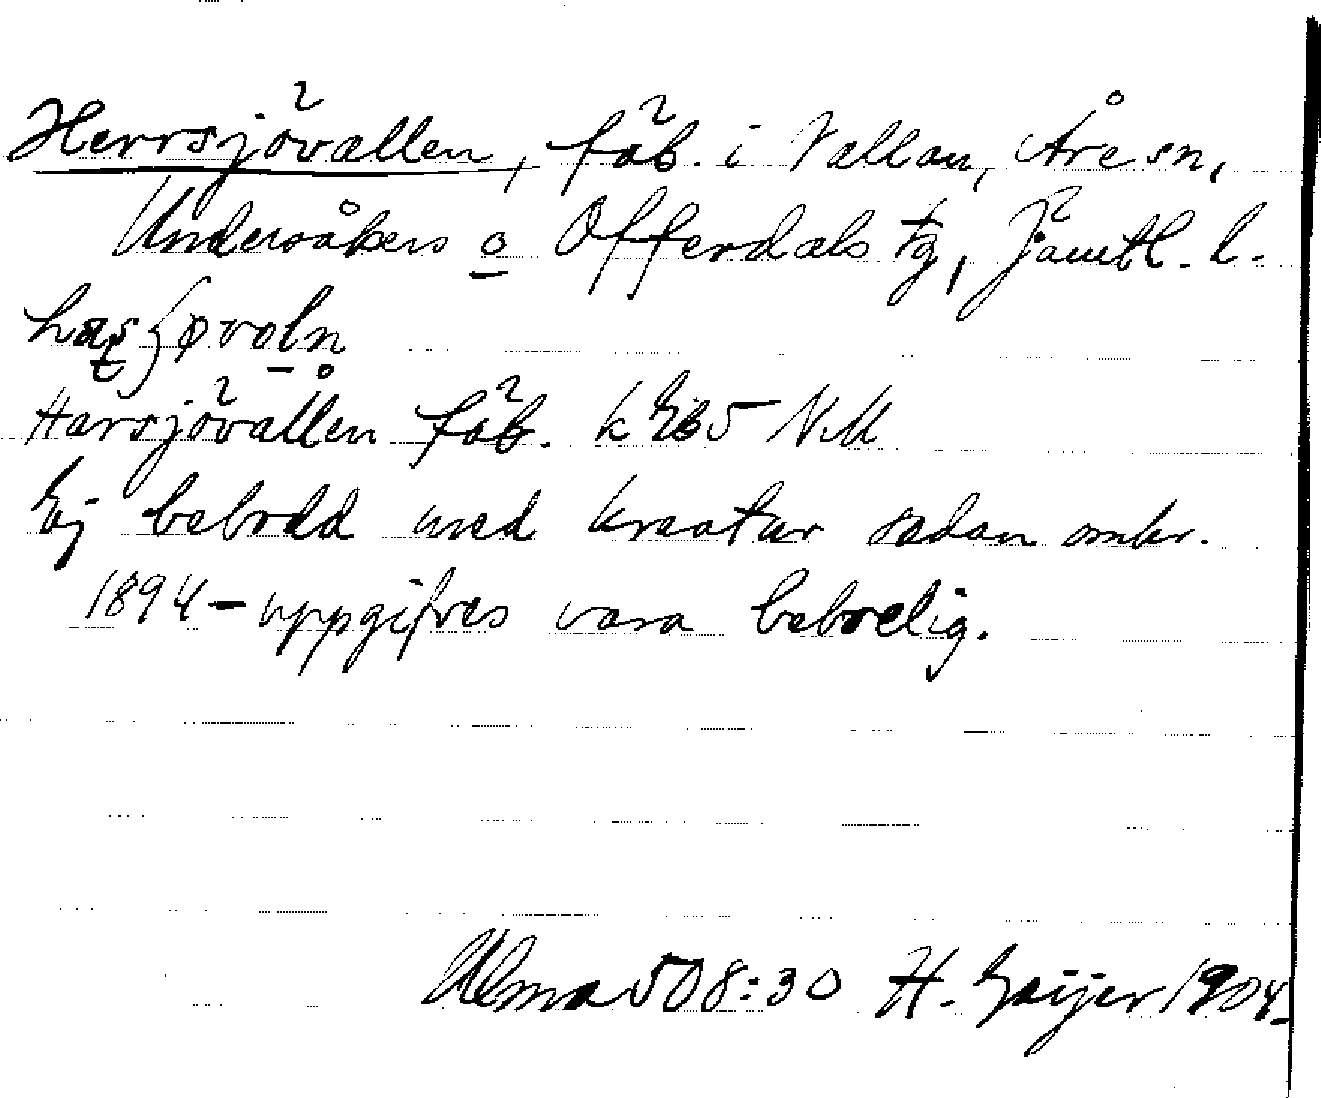 Herrsjövallen, fäb. i Vallan, Åre sn,
Undersåkers o Offerdals tg, Jämtl. l.
Harrsjövallen fäb. k
Ej bebodd med kreatur sedan omkr.
1894 - uppgifves vara beboelig.
Ulma 508:30 H. Geijer 1904.